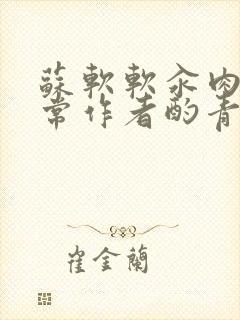 蘇軟軟汆肉
常作者酌青
崔金蘭